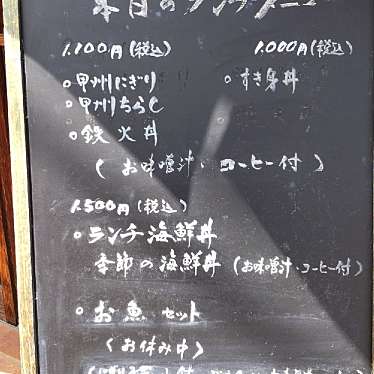 本日のランチメニュー
1.100円(税込) 1.000円(税込)
○甲州にぎり ○すき身丼
○甲州ちらし
○鉄火丼
(お味噌汁・コーヒー付)
1.500円(税込)
○ランチ海鮮丼
季節の海鮮丼(お味噌汁・コーヒー付)
○お魚セット
(お休み中)